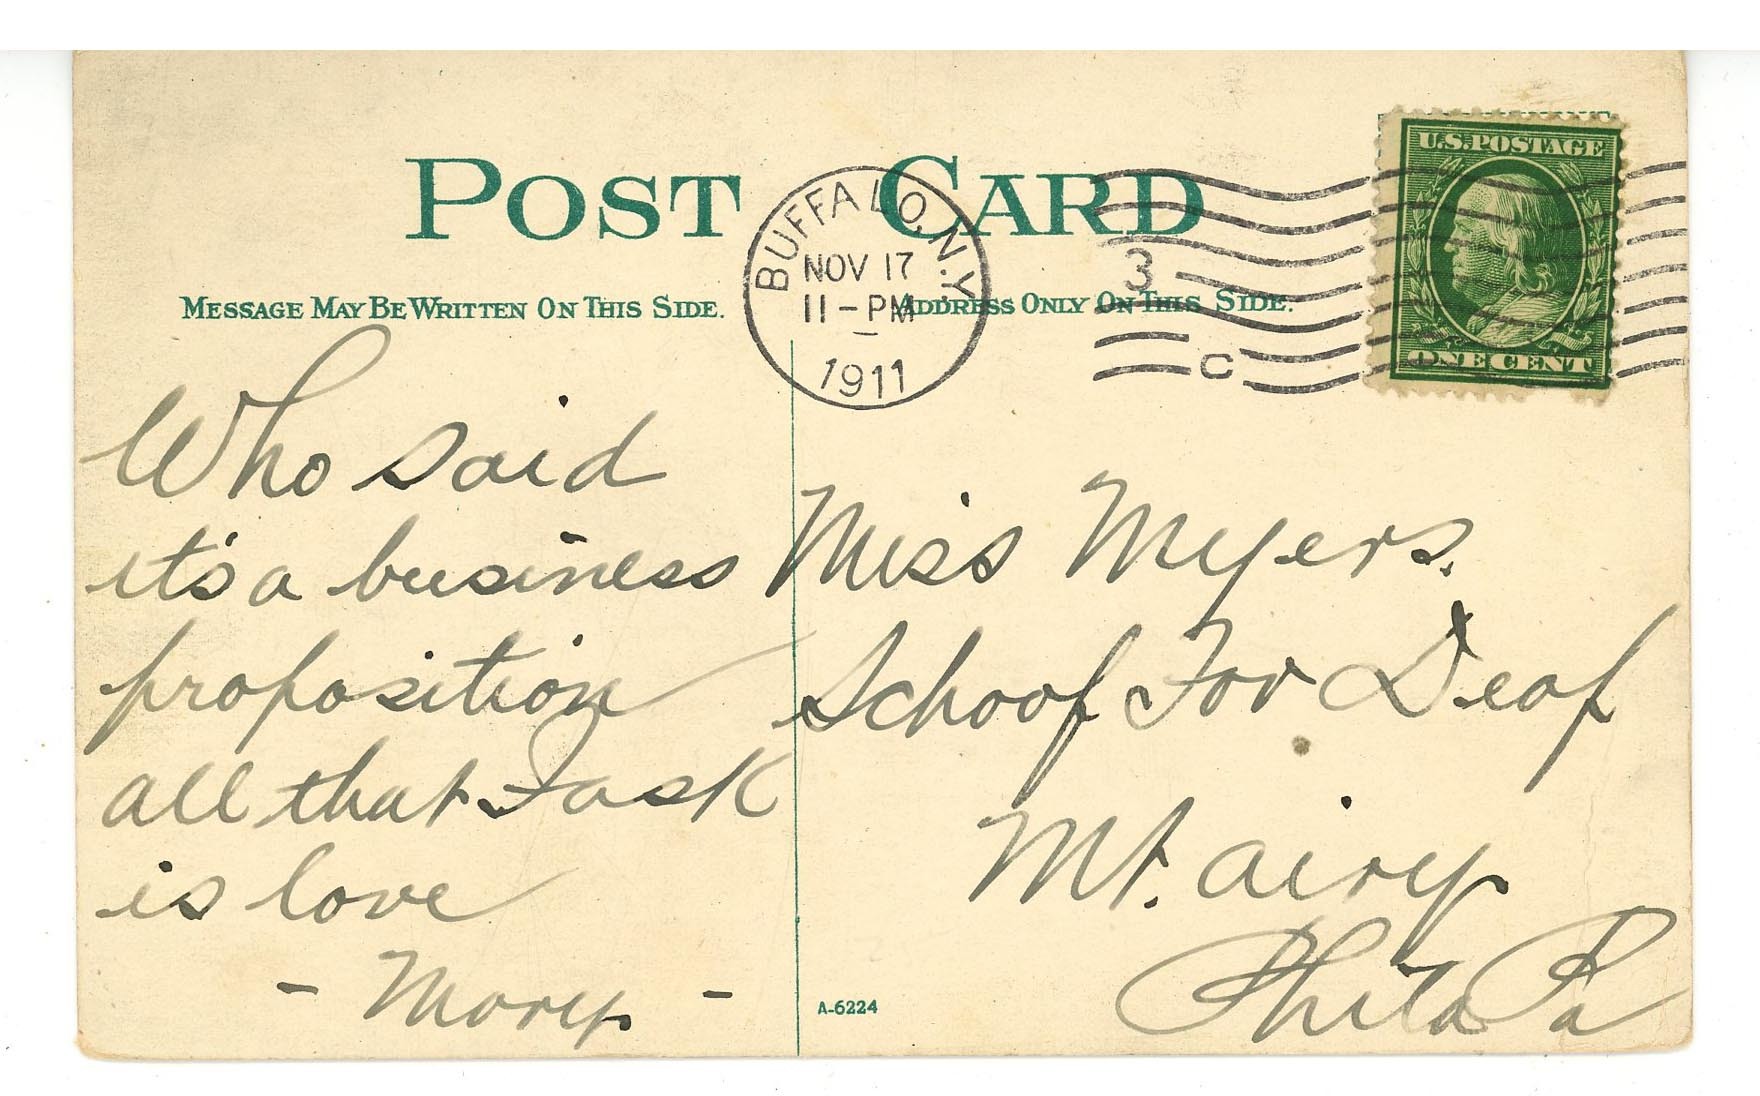 POST CARD
MESSAGE MAY BE WRITTEN ON THIS SIDE.
ADDRESS ONLY ON THIS SIDE.
BUFFALO, N.Y.
NOV 17
11-PM
1911
3
C
U.S. POSTAGE
ONE CENT
Who said
it's a business
proposition
all that I ask
is love
- Mary -
Miss Myers.
School For Deaf
Mt. airy
Phila Pa
A-6224